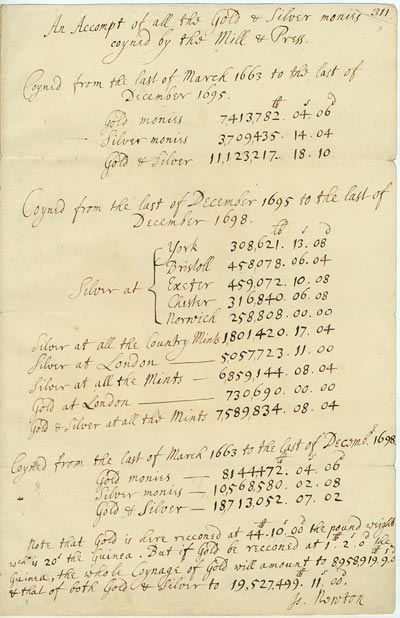 311
An Accompt of all the Gold & Silver monies
coyned by the Mill & Press.
Coyned from the last of March 1663 to the last of
December 1695.
lb s d
Gold monies 7,413,782. 04. 06
Silver monies 3,709,435. 14. 04
Gold & Silver 11,123,217. 18. 10
Coyned from the last of December 1695 to the last of
December 1698.
lb s d
York 308,621. 13. 08
Bristoll 458,078. 06. 04
Silver at { Exeter 459,072. 10. 08
Chester 316,840. 06. 08
Norwich 258,808. 00. 00
Silver at all the Country Mints 1801420. 17. 04
Silver at London — 5057,723. 11. 00
Silver at all the Mints — 6859,144. 08. 04
Gold at London — 730,690. 00. 00
Gold & Silver at all the Mints 7,589,834. 08. 04
Coyned from the last of March 1663 to the last of Decemb.r 1698.
lb s d
Gold monies — 8144472. 04. 06
Silver monies — 10,568,580. 02. 08
Gold & Silver — 18713,052. 07. 02
Note that Gold is here reconed at 44.lb 10.s 00d the pound weight
wch is 20s the Guinea. But if Gold be reconed at 1.lb 2.s 0d the
Guinea, the whole Coynage of Gold will amount to 8958919.lb 9.s 0d
& that of both Gold & Silver to 19,527,499.lb 11.s 00.d
Is. Newton